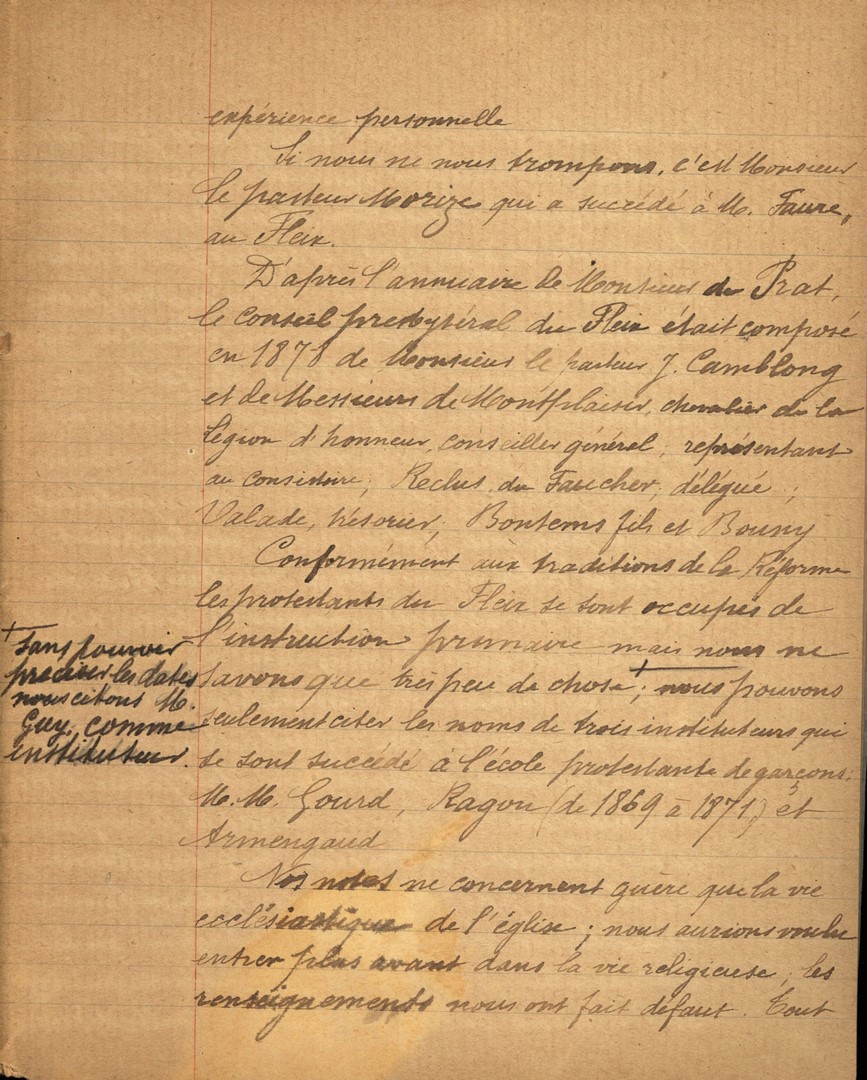 expérience personnelle
Si nous ne nous trompons, c'est Monsieur
le pasteur Morize qui a succédé à M. Faure,
au Fleix.
D'après l'annuaire de Monsieur du Prat,
le conseil presbytéral du Fleix était composé
en 1878 de Monsieur le pasteur J. Camblong
et de Messieurs de Montplaisir, chevalier de la
légion d'honneur, conseiller général, représentant
au consistoire; Reclus du Faucher, délégué;
Valade, trésorier; Bontems fils et Bouny
Conformément aux traditions de la Réforme
les protestants du Fleix se sont occupés de
l'instruction primaire mais nous ne
savons que très peu de chose; nous pouvons
seulement citer les noms de trois instituteurs qui
se sont succédé à l'école protestante de garçons:
M.M. Gourd, Ragou (de 1869 à 1871) et
Armengaud
Nos notes ne concernent guère que la vie
ecclésiastique de l'église; nous aurions voulu
entrer plus avant dans la vie religieuse; les
renseignements nous ont fait défaut. Tout
+
Sans pouvoir
préciser les dates
nous citons M.
Guy comme
instituteur.